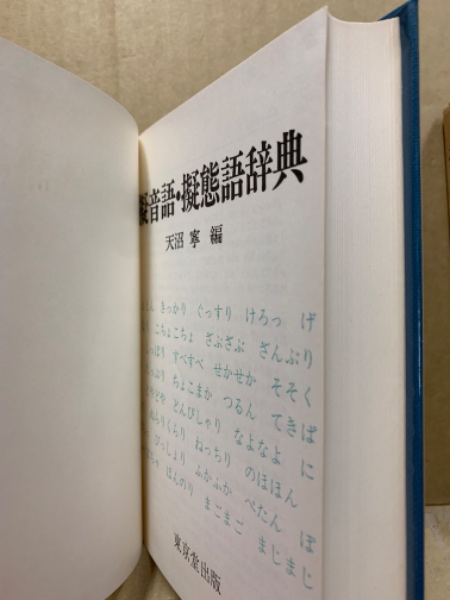 擬音語・擬態語辞典
天沼 寧 編
きっかり ぐっすり けろっ げ
こちょこちょ ざぶざぶ ざんぶり
すべすべ せかせか そそく
ちょこまか つるん てきぱ
どんぴしゃり なよなよ に
ぬらりくらり ねっちり のほほん
びっしょり ふかふか ぺたん ぽ
ほんのり まごまご まじまじ
東京堂出版